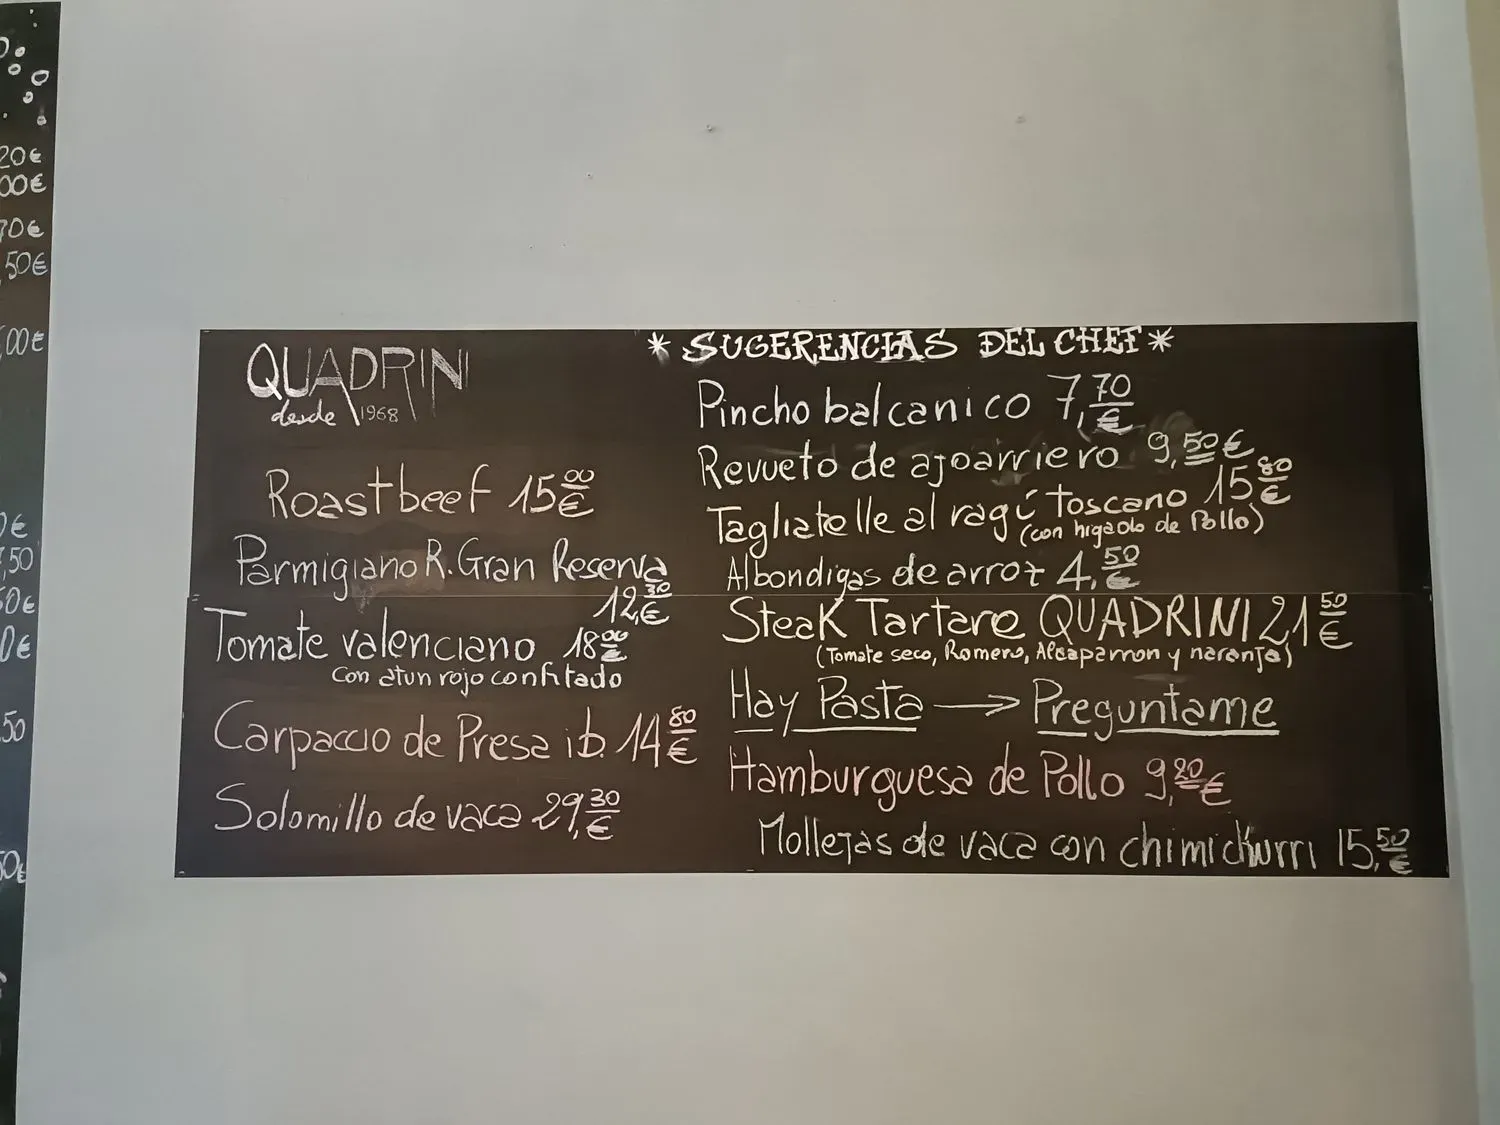 20€
00€
70€
,50€
,00€
0€
,50
50€
0€
50
50€
QUADRINI
desde 1968
Roastbeef 15,00€
Parmigiano R. Gran Reserva
12,30€
Tomate valenciano 18,00€
con atun rojo confitado
Carpaccio de Presa ib. 14,80€
Solomillo de vaca 29,30€
* SUGERENCIAS DEL CHEF *
Pincho balcanico 7,70€
Revueto de ajoarriero 9,50€
Tagliatelle al ragú toscano 15,80€
(con higado de Pollo)
Albondigas de arroz 4,50€
Steak Tartare QUADRINI 21,50€
(Tomate seco, Romero, Alcaparron y naranja)
Hay Pasta → Preguntame
Hamburguesa de Pollo 9,20€
Mollejas de vaca con chimichurri 15,50€